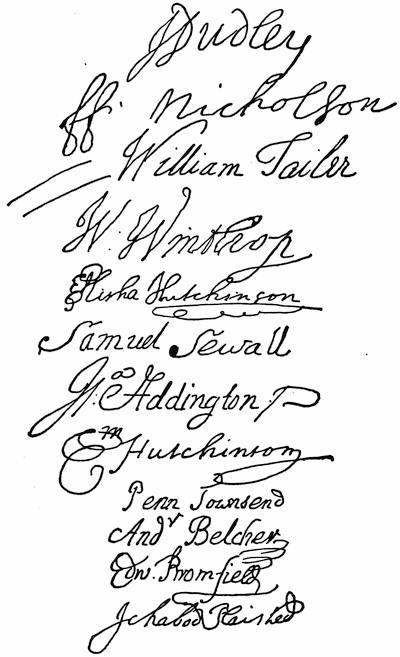 J Dudley
ff. Nicholson
William Tailer
W. Winthrop
Elisha Hutchinson
Samuel Sewall
Addington
Em Hutchinson
Penn Townsend
Andr Belcher
Edw. Bromfield
Ichabod Plaisted